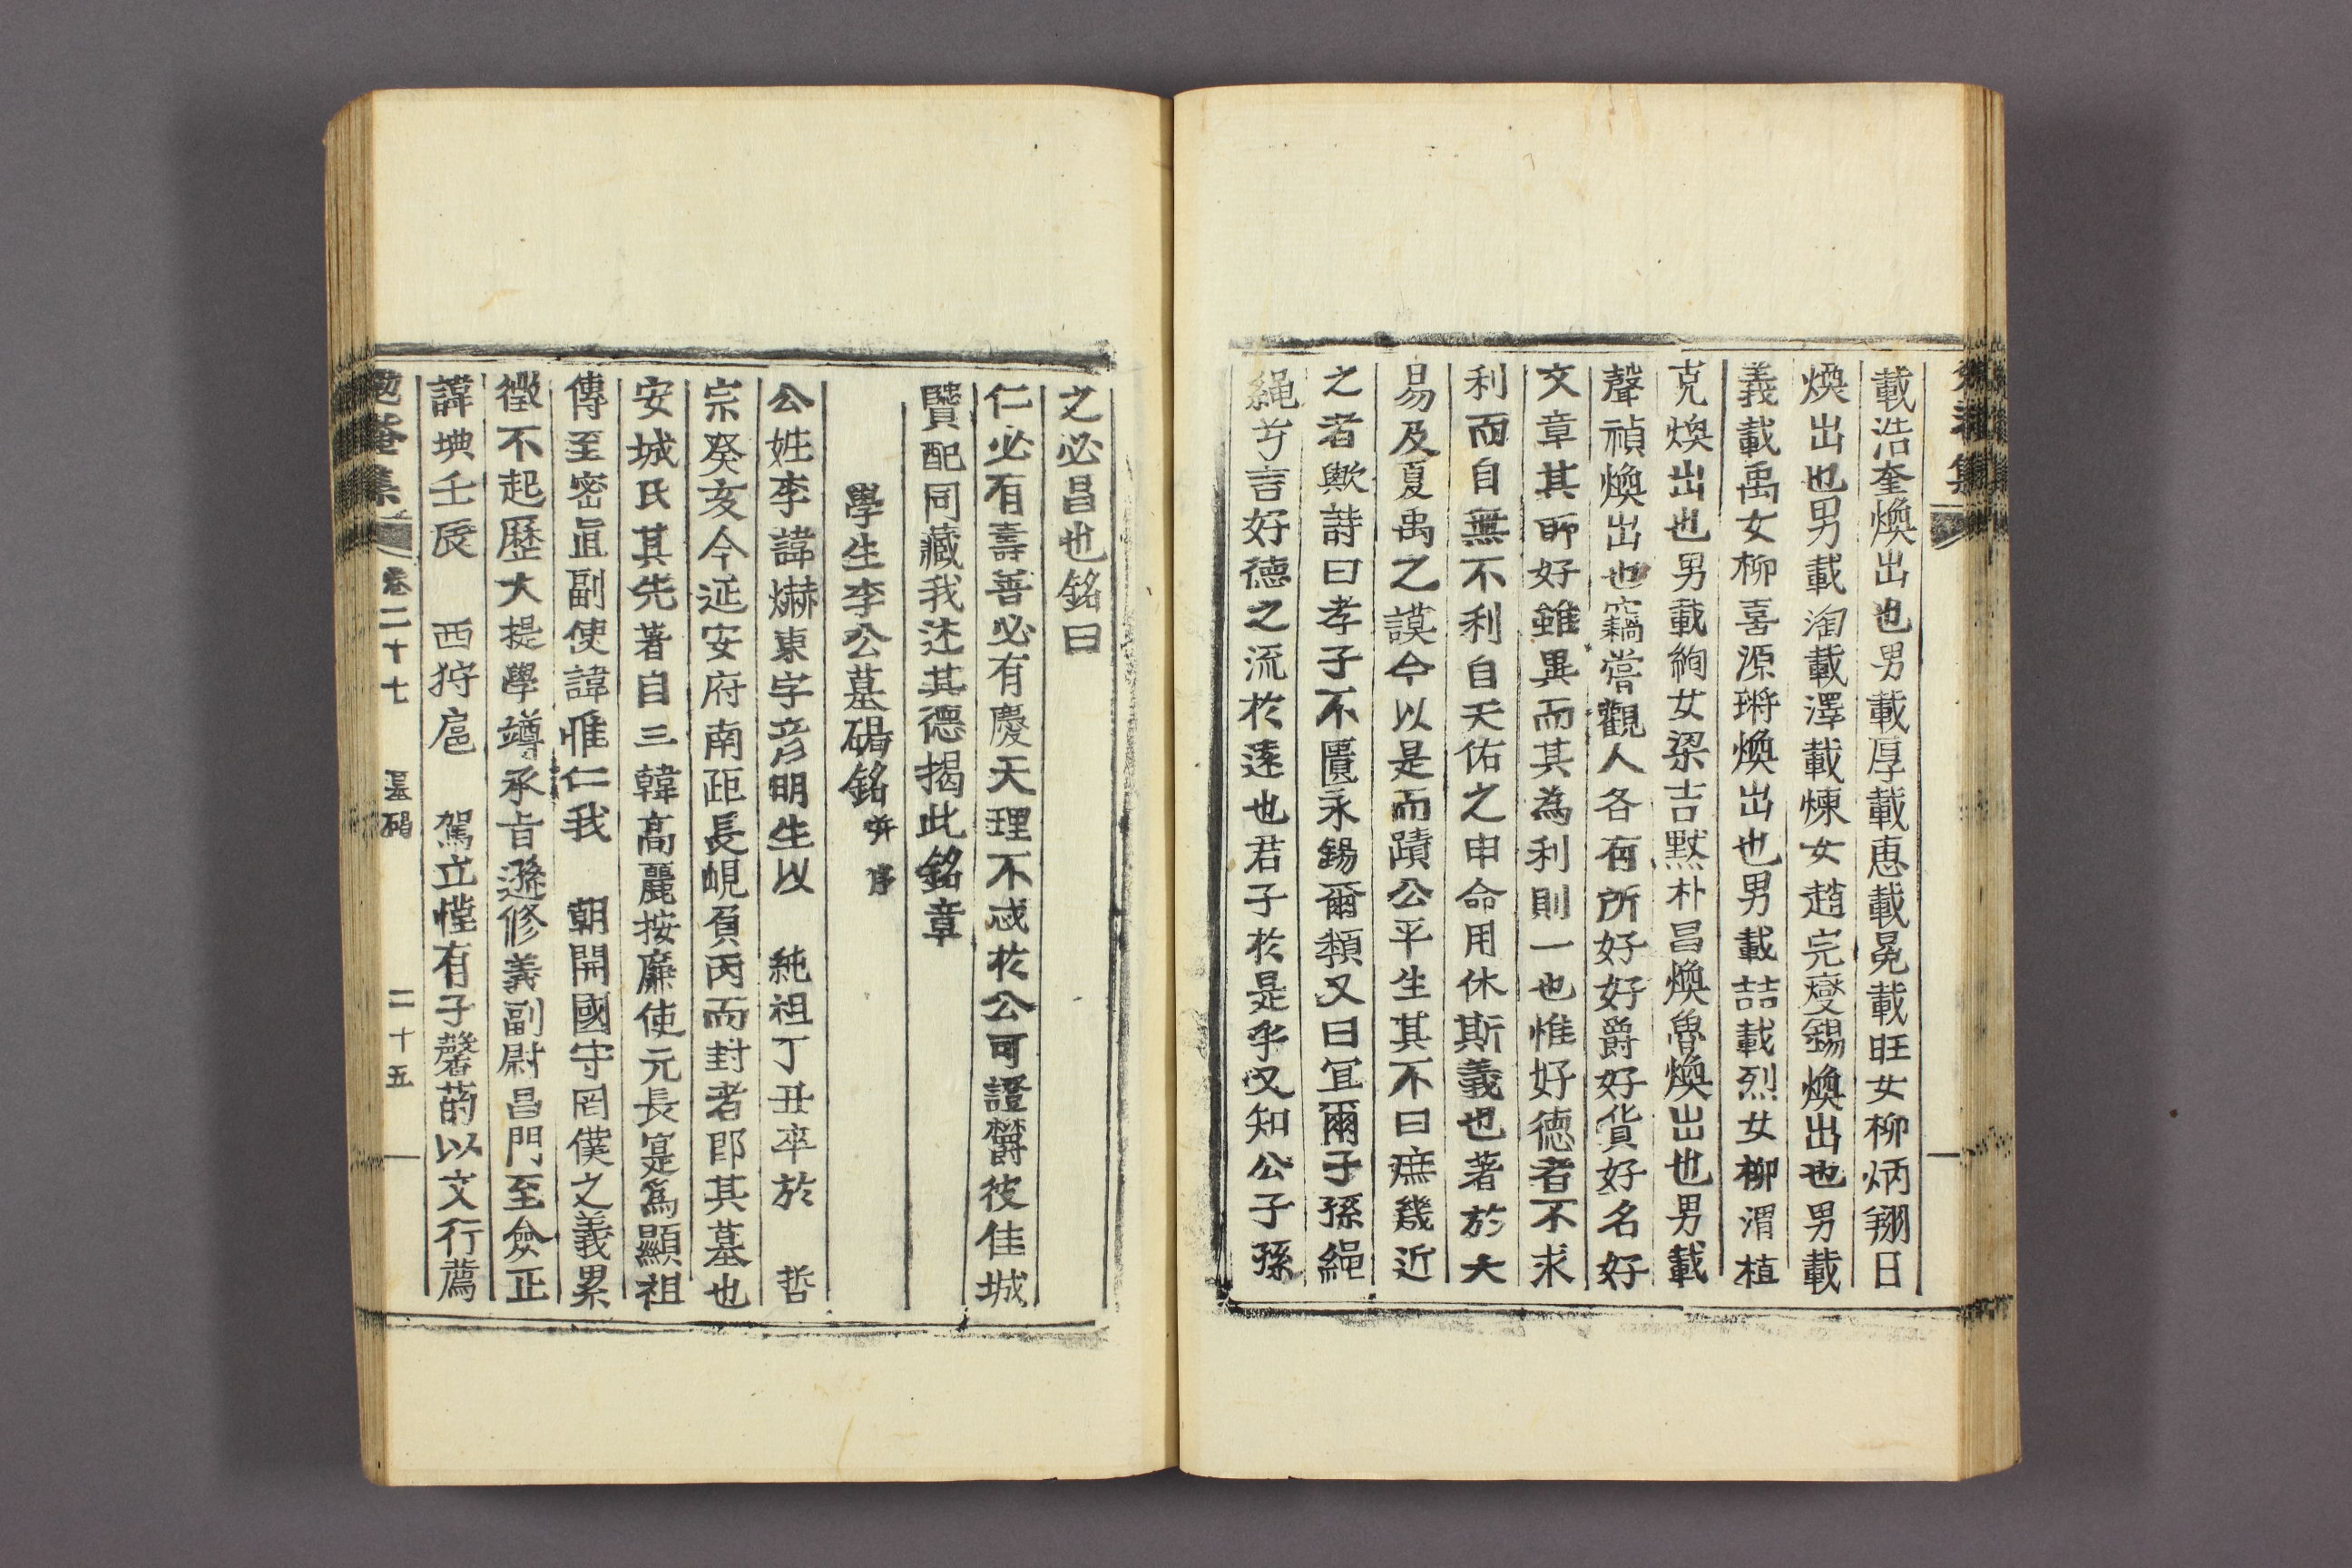 載浩奎煥出也男載厚載惠載冕載旺女柳炳翔日
煥出也男載淘載澤載煉女趙完燮錫煥出也男載
義載禹女柳喜源瑡煥出也男載喆載烈女柳渭植
克煥出也男載絢女梁吉默朴昌煥魯煥出也男載
聲禎煥出也竊嘗觀人各有所好好爵好貨好名好
文章其所好雖異而其為利則一也惟好德者不求
利而自無不利自天佑之申命用休斯義也著於大
易及夏禹之謨今以是而蹟公平生其不曰庶幾近
之者歟詩曰孝子不匱永錫爾類又曰宜爾子孫繩
繩兮言好德之流於遠也君子於是乎又知公子孫
之必昌也銘曰
仁必有壽善必有慶天理不忒於公可證欝彼佳城
賢配同藏我述其德揭此銘章
學生李公墓碣銘 并序
公姓李諱爀東字彦明生以 純祖丁丑卒於 哲
宗癸亥今延安府南距長峴負丙而封者卽其墓也
安城氏其先著自三韓高麗按廉使元長寔爲顯祖
傳至密直副使諱惟仁我 朝開國守罔僕之義累
徵不起歷大提學竴承旨遜修義副尉昌門至僉正
諱㙉壬辰 西狩扈 駕立慬有子馨菂以文行薦
勉菴集 卷二十七 墓碣 二十五